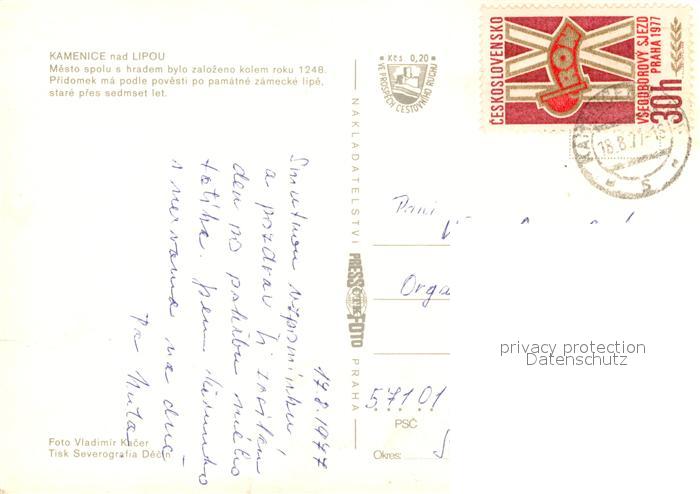 KAMENICE nad LIPOU
Město spolu s hradem bylo založeno kolem roku 1248.
Přídomek má podle pověsti po památné zámecké lípě,
staré přes sedmset let.
Kčs 0,20
VE PROSPĚCH CESTOVNÍHO RUCHU
ČESKOSLOVENSKO
IX
ROH
VŠEODBOROVÝ SJEZD
PRAHA 1977
30h
18.8.77-15
NAKLADATELSTVÍ PRESSFOTO PRAHA
17.8.1977
Smutnou vzpomínku
a pozdrav Ti zasílám
den po pohřbu mého
tatíka. Jsem
na duši
Paní
Orga
571 01
PSČ
Okres:
Foto Vladimír Kačer
Tisk Severografia Děčín
privacy protection
Datenschutz